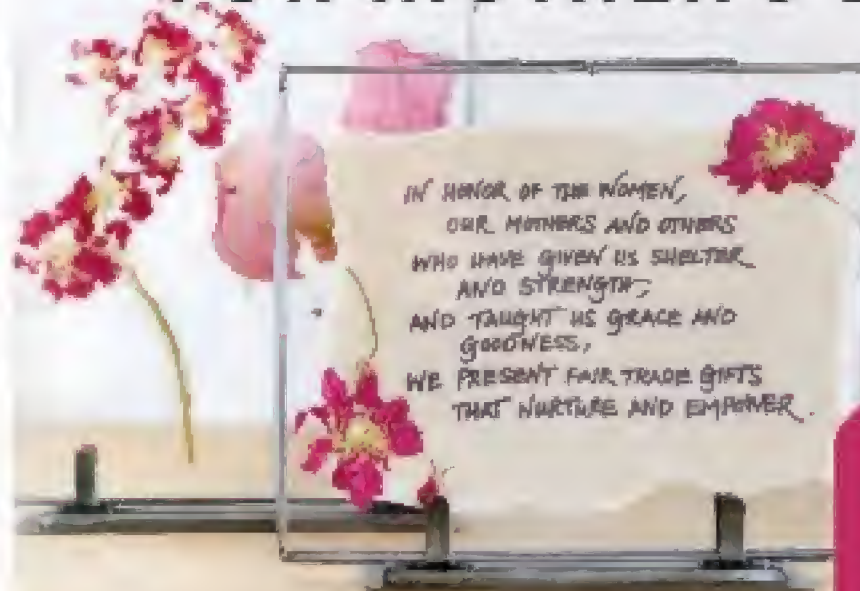 IN HONOR OF THE WOMEN,
OUR MOTHERS AND OTHERS
WHO HAVE GIVEN US SHELTER
AND STRENGTH,
AND TAUGHT US GRACE AND
GOODNESS,
WE PRESENT FAIR TRADE GIFTS
THAT NURTURE AND EMPOWER.